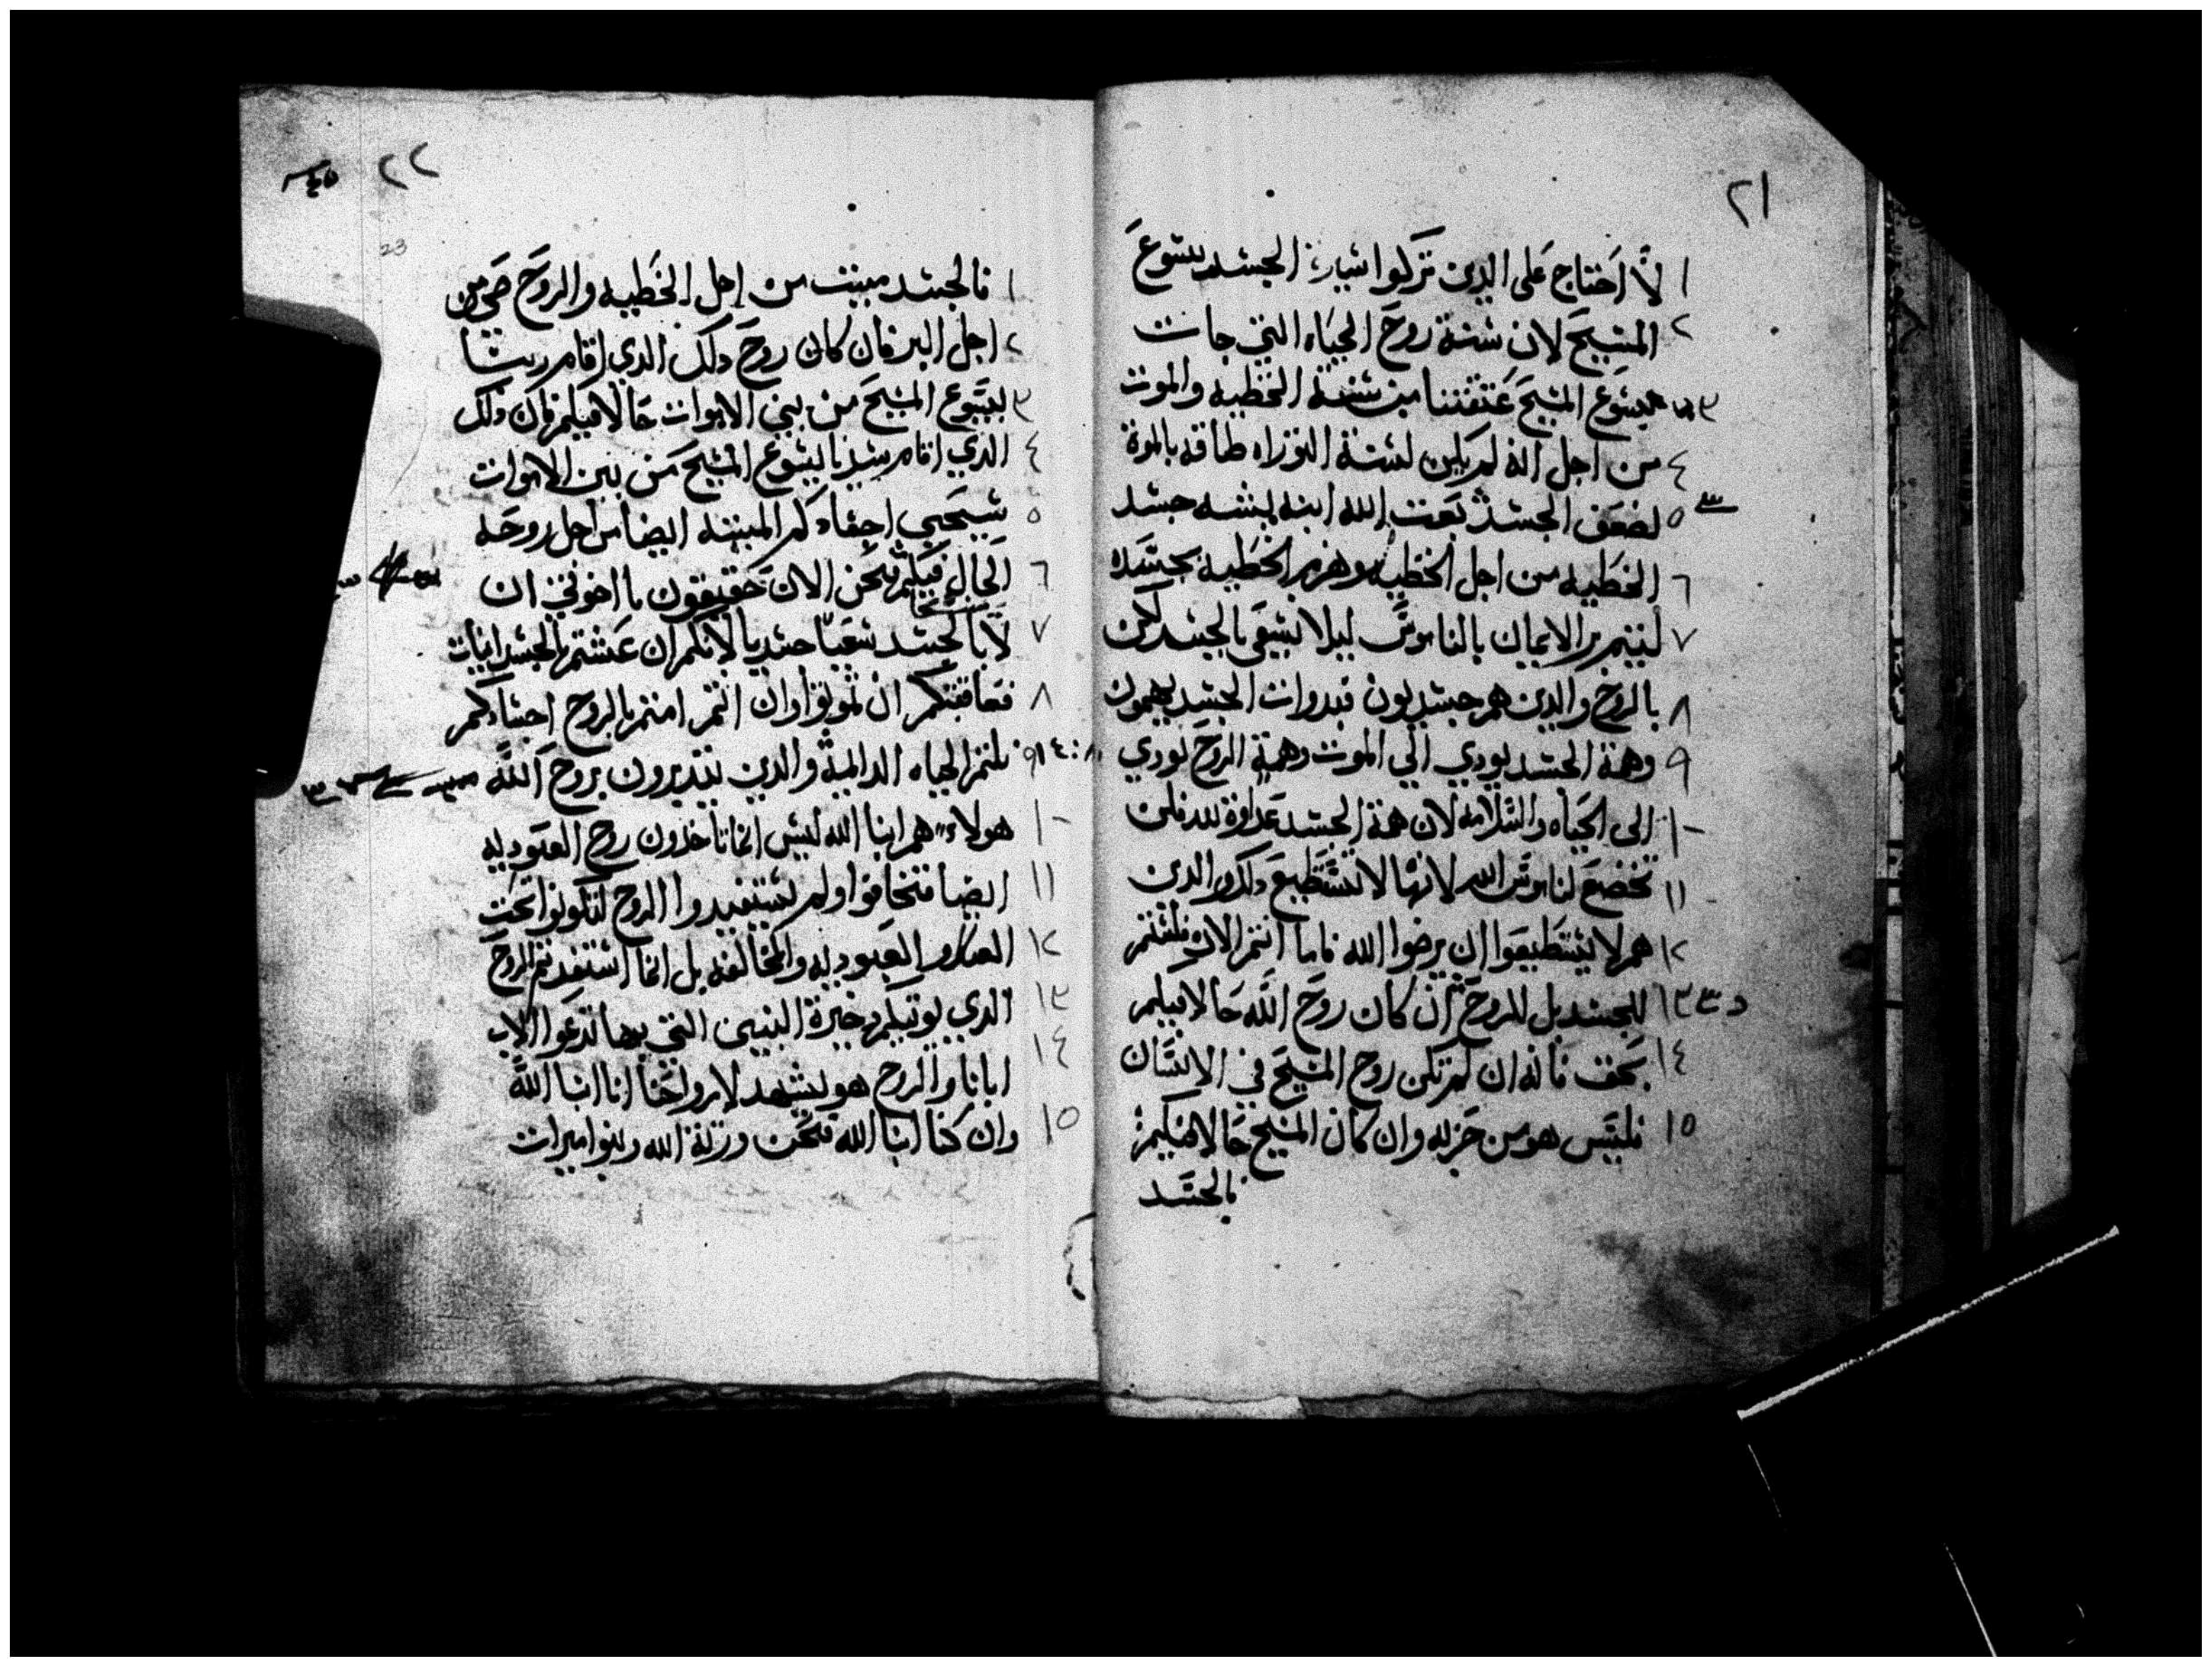 ٢١
١ لا احتاج على الدين تركوا اشيار الجسد بيسوع
٢ المسيح لان سنة روح الحياه التي جات
٣ بيسوع المسيح عتقتنا من سنة الخطيه والموت
٤ من اجل انه لم يكن لسنة التوراه طاقه بالموتة
٥ لضعف الجسد بعت الله ابنه بشبه جسد
٦ الخطيه من اجل الخطيه وهزم الخطيه بجسده
٧ ليتم بر الايمان بالناموس ليلا نسعى بالجسد لكن
٨ بالروح والدين هم جسديون فبدوات الجسد يهمون
٩ وهمة الجسد تودي الي الموت وهمة الروح تودي
١٠ الى الحياه والسلامه لان همة الجسد عداوة لله فلن
١١ تخضع لناموس الله لانها لا تستطيع دلك والدين
١٢ هم لا يستطيعوا ان يرضوا الله فاما انتم الان فلستم
١٣ للجسد بل للروح ان كان روح الله حالا فيكم
١٤ بحق فانه ان لم تكن روح المسيح في الانسان
١٥ فليس هو من حزبه وان كان المسيح حالا فيكم
فالجسد
٢٢
23
١ فالجسد ميت من اجل الخطيه والروح حي من
٢ اجل البر فان كان روح دلك الدي اقام ربنا
٣ يسوع المسيح من بين الاموات حالا فيكم فان دلك
٤ الدي اقام سيدنا يسوع المسيح من بين الاموات
٥ سيحيي اجسادكم الميته ايضا من اجل روحه
٦ الحال فيكم فنحن الان حقيقون يا اخوتي ان
٧ لا بالجسد نسعى جسديا لانكم ان عشتم بالجسدانيات
٨ فعاقبتكم ان تموتوا وان انتم امتم بالروح اجسادكم
٩ ١٤:٨ نلتم الحياه الدايمة والدين يتدبرون بروح الله
١٠ هولاء هم ابنا الله ليس انما تاخدون روح العبوديه
١١ ايضا فتخافوا ولم تستفيدوا الروح لتكونوا تحت
١٢ العبوديه والمخالفه بل انما استفدتم الروح
١٣ الدي يوتيكم دخيرة البنين التي بها ندعوا الاب
١٤ ابانا والروح هو يشهد لارواحنا اننا ابنا الله
١٥ وان كنا ابنا الله فنحن ورثة الله وبنوا ميرات